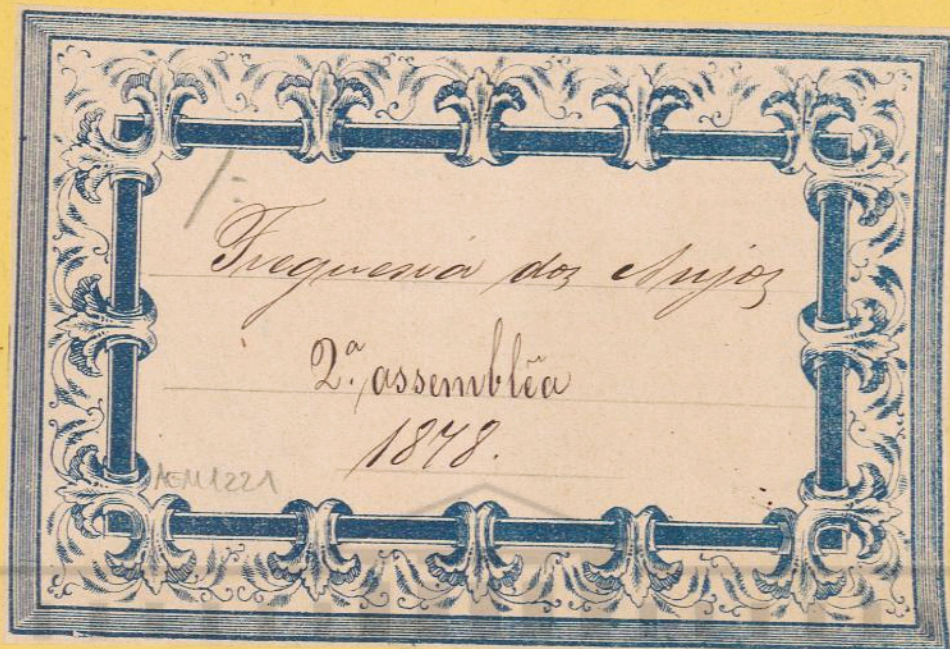 Freguesia dos Anjos
2.ª assemblêa
1878.
AEM1221